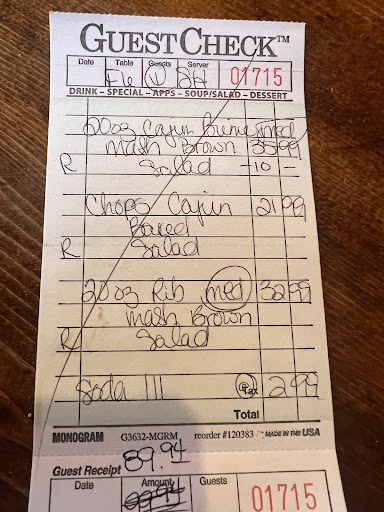 GUESTCHECK™
Date Table Guests Server
F6 1 SH 01715
DRINK – SPECIAL – APPS – SOUP/SALAD – DESSERT
20oz Cajun Prime med
Mash Brown 35 99
R Salad -10 -
Chops Cajun 21 99
Baked
R Salad
20oz Rib med 32 99
Mash Brown
R Salad
Soda III Tax 2 99
Total
MONOGRAM G3632-MGRM reorder #120383 MADE IN THE USA
89.94
Guest Receipt
Date Amount Guests
99.94 01715